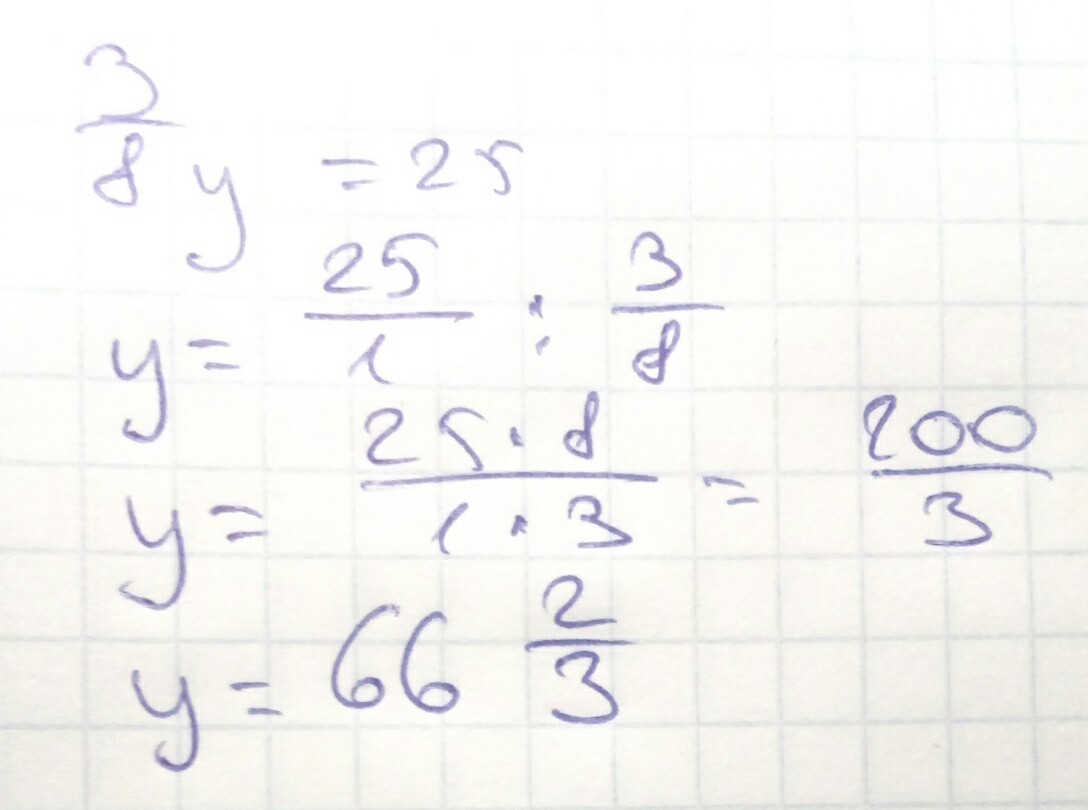 3/8 y = 25
y = 25/1 : 3/8
y = 25·8/1·3 = 200/3
y = 66 2/3